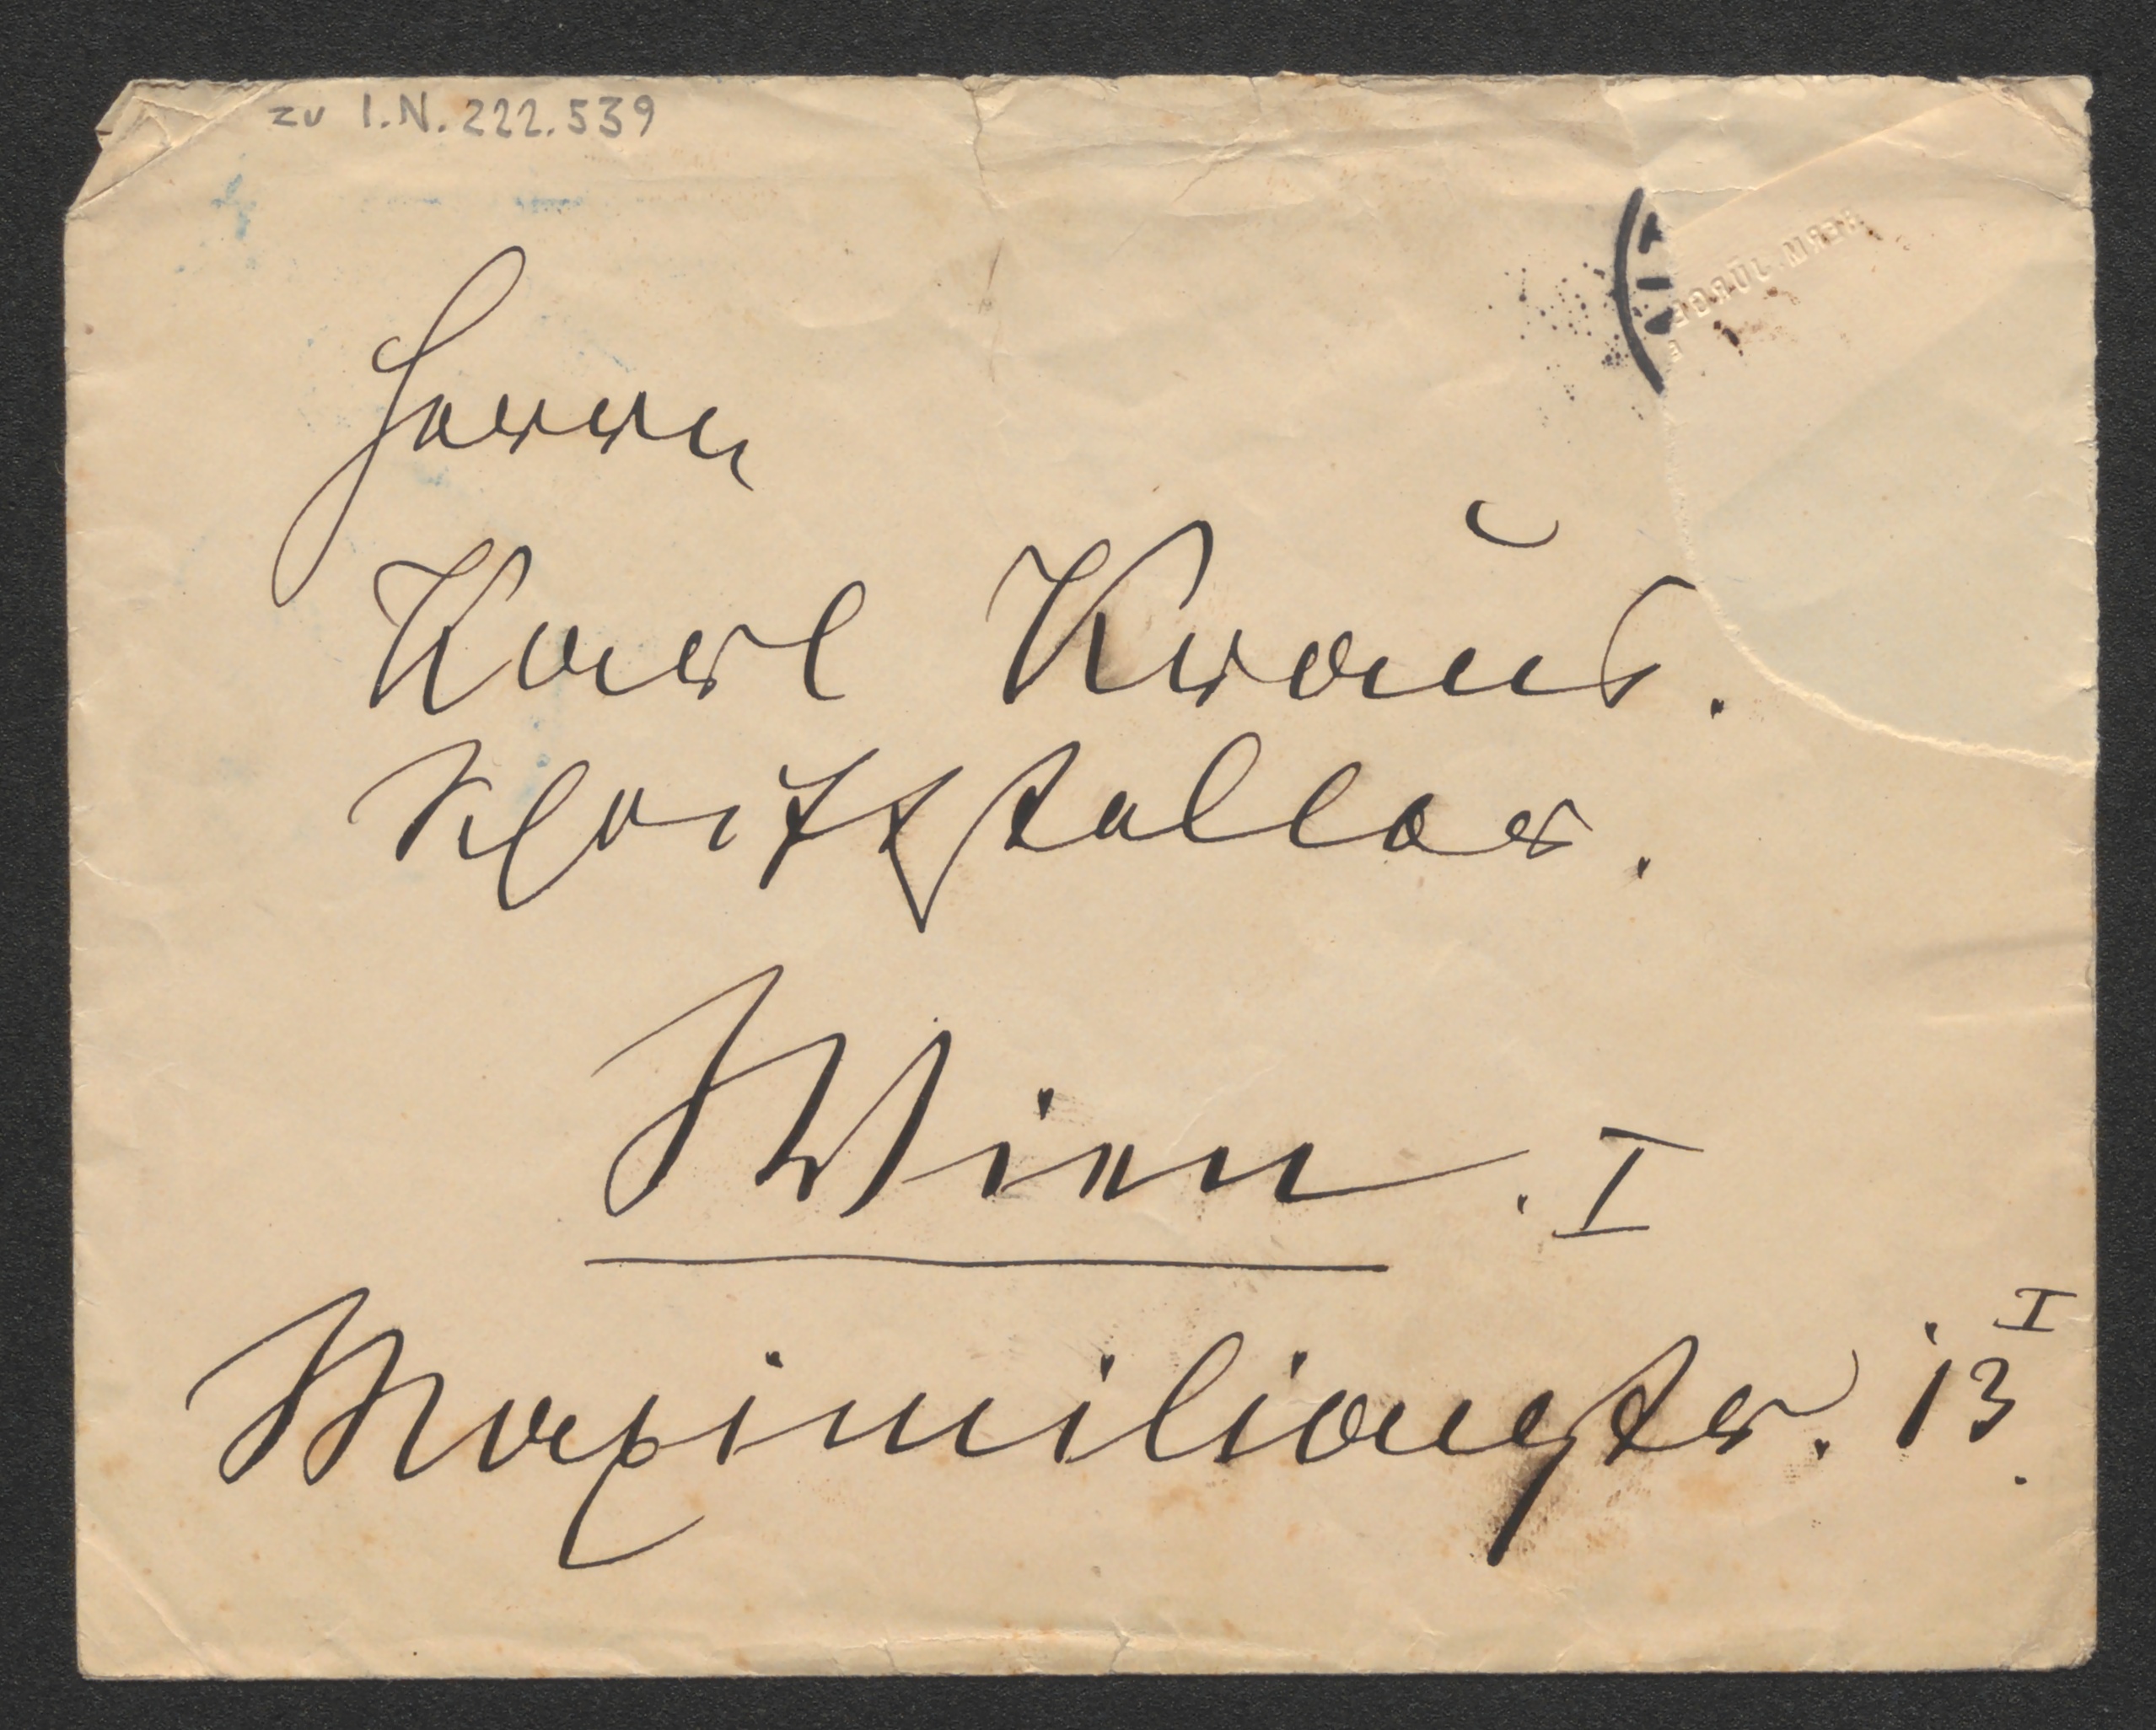 zu I.N. 222.539
Herrn
Karl Kraus.
Schriftsteller.
Wien. I
Maximilianstr. 13 I.